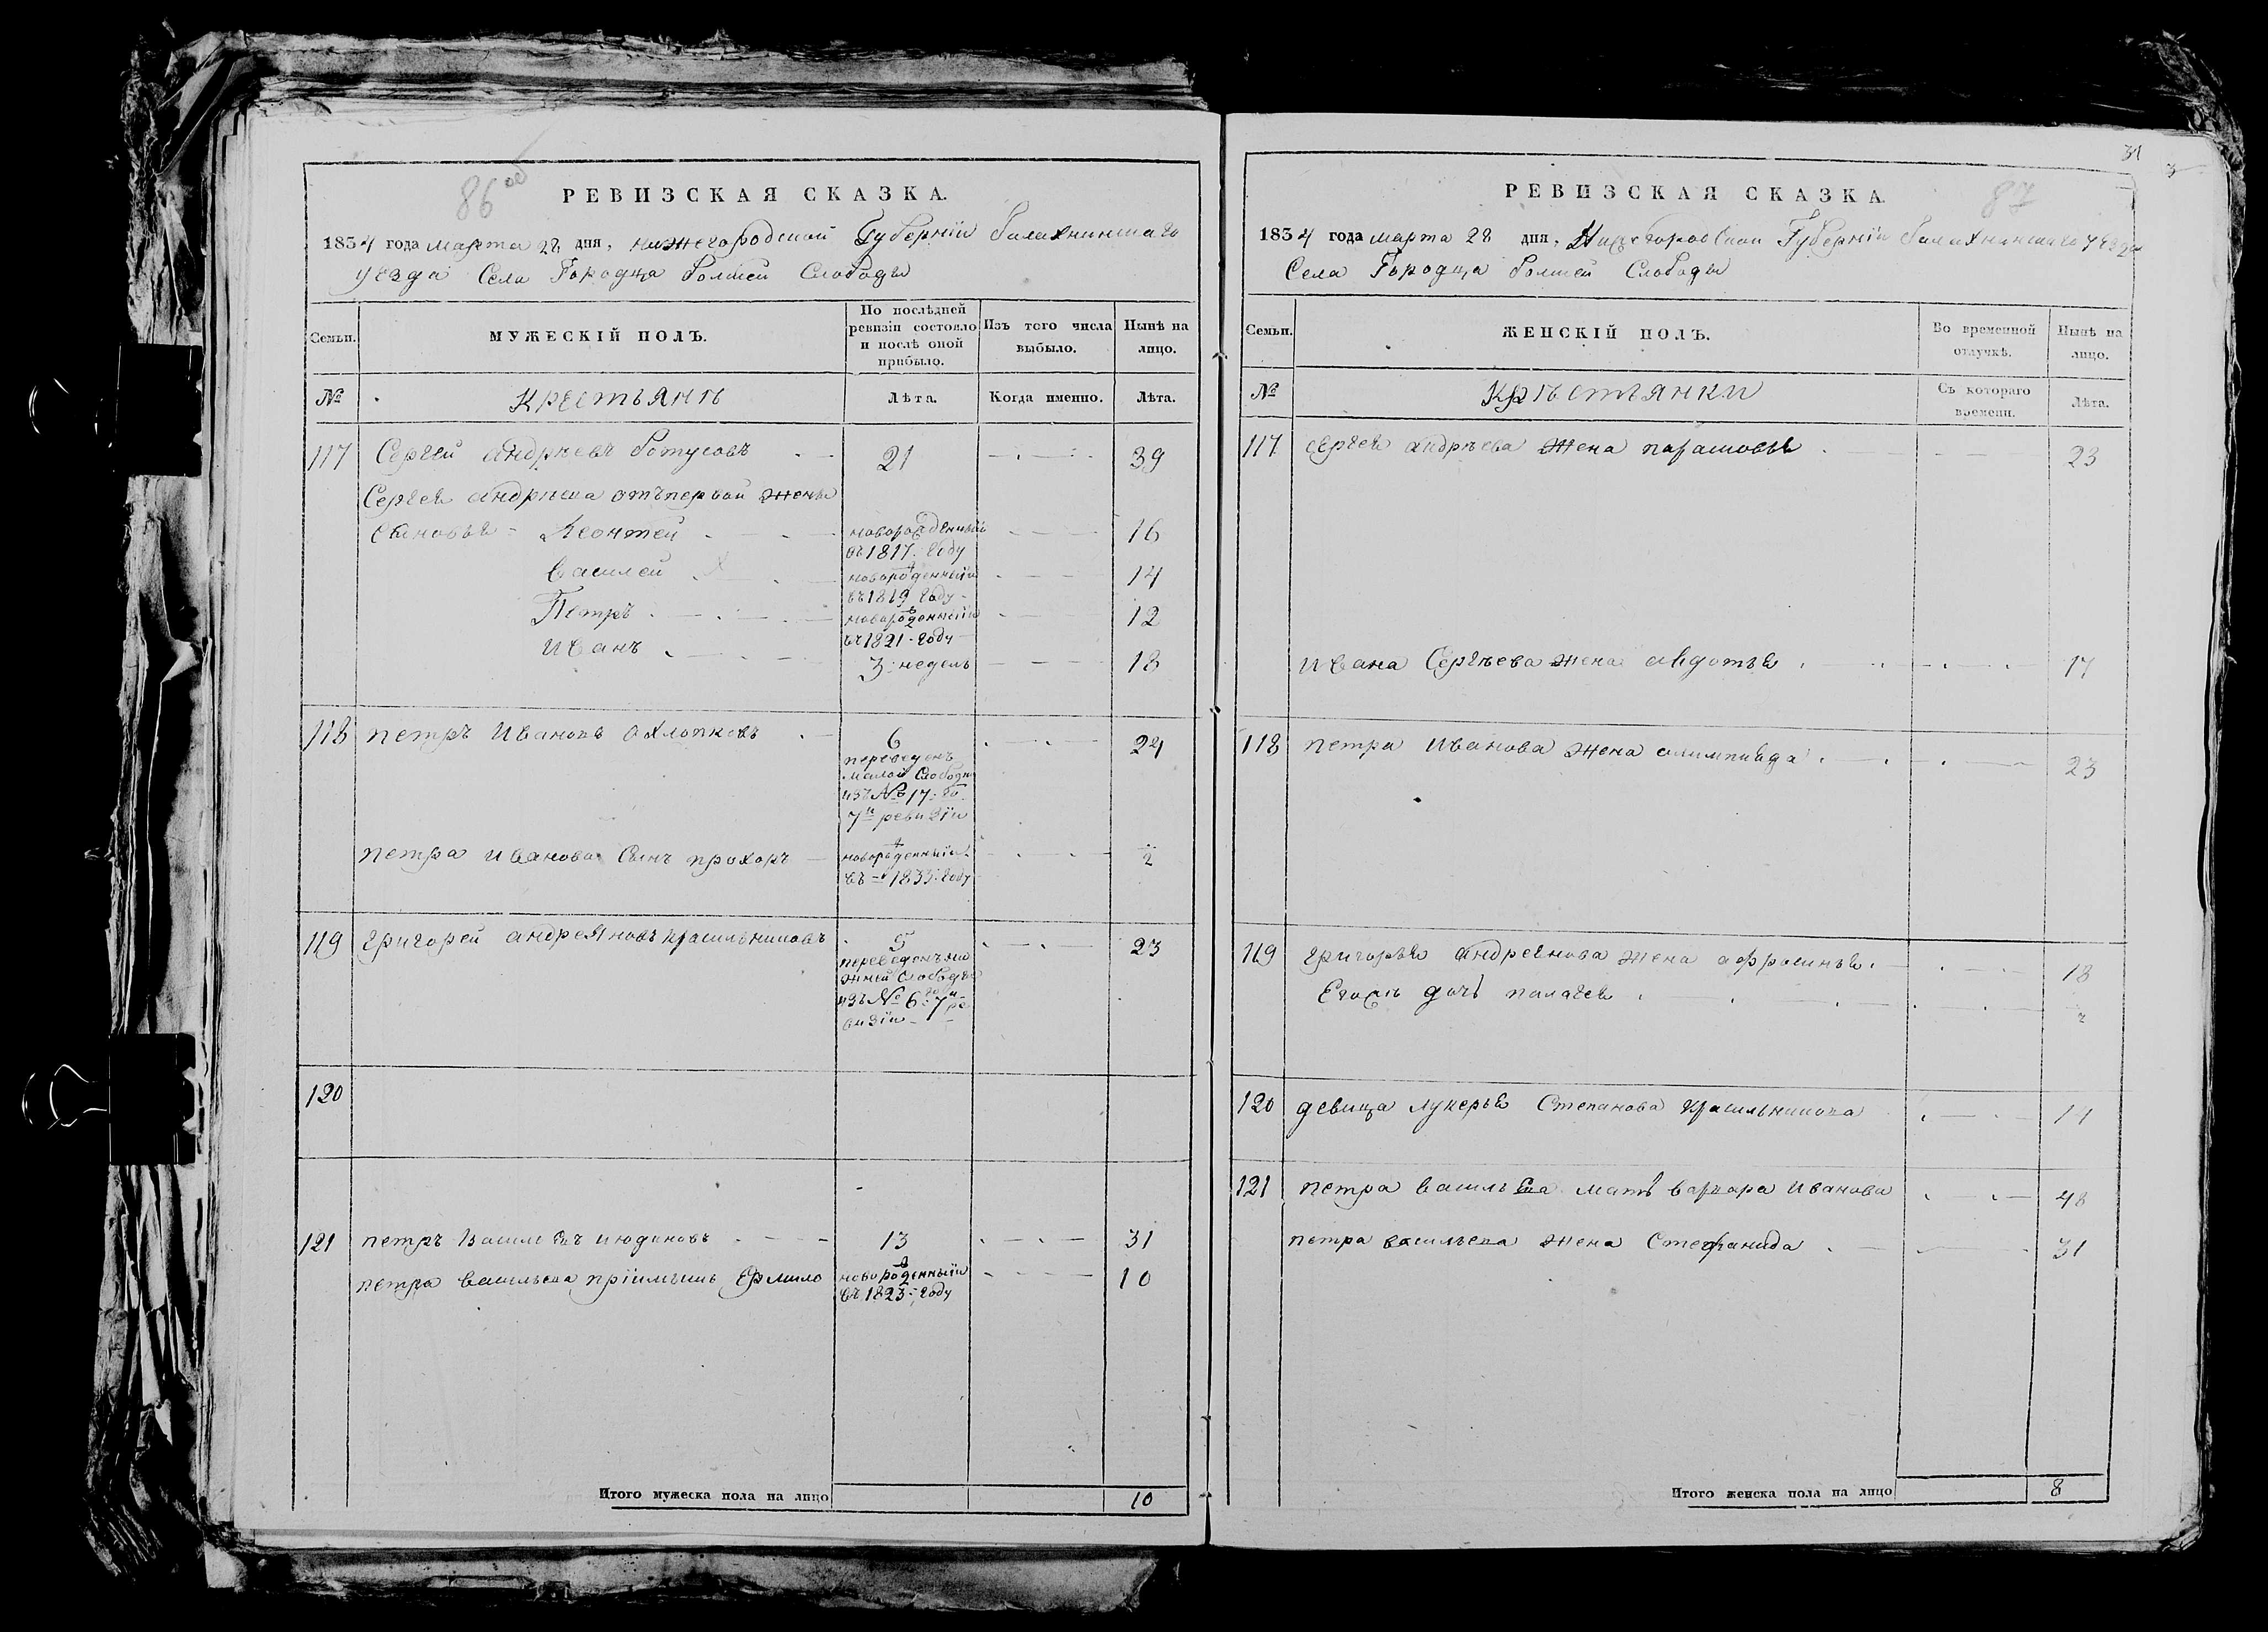 86 об
РЕВИЗСКАЯ СКАЗКА.
1834 года марта 28 дня, нижегородской Губерніи балахнинскаго
уезда Села Городца болшей Слободы
Семьи.
МУЖЕСКІЙ ПОЛЪ.
По послѣдней ревизіи состояло и послѣ оной прибыло.
Изъ того числа выбыло.
Нынѣ на лицо.
№
Крестьянѣ
Лѣта.
Когда именно.
Лѣта.
117 Сергей андрѣевъ 21 39
Сергея андрѣева отъ первой жены
Сыновья - Леонтей новорожденный въ 1817. году 16
василей новорожденный въ 1819 году 14
Петръ новорожденный въ 1821 году 12
иванъ 3 недель 18
118 петръ Ивановъ охлопковъ 6 24
переведенъ
малой слободы
изъ № 17: го
7й ревизіи
петра иванова сынъ прохоръ новорожденный въ 1833 году 2
119 григорей андреяновъ красильниковъ 5 23
переведенъ
жней слободы
изъ № 6: го 7й ре
визіи
120
121 петръ василевъ июдиновъ 13 31
петра васильева пріимышь Ермило новорожденный въ 1823 году 10
Итого мужеска пола на лицо 10
31
87
РЕВИЗСКАЯ СКАЗКА.
1834 года марта 28 дня, Нижегородской Губерніи балахнинскаго уезда
Села Городца болшей Слободы
Семьи.
ЖЕНСКІЙ ПОЛЪ.
Во временной отлучкѣ.
Нынѣ на лицо.
№
Крѣстьянки
Съ котораго времени.
Лѣта.
117 сергея андрѣева жена парасковья 23
ивана Сергѣева жена авдотья 17
118 петра иванова жена олимпиада 23
119 григорья андреянова жена афросинья 18
Егожъ дочь палагея 2
120 девица лукерья Степанова красильникова 11
121 петра василева мать варвара иванова 48
петра васильева жена Стефанида 31
Итого женска пола на лицо 8